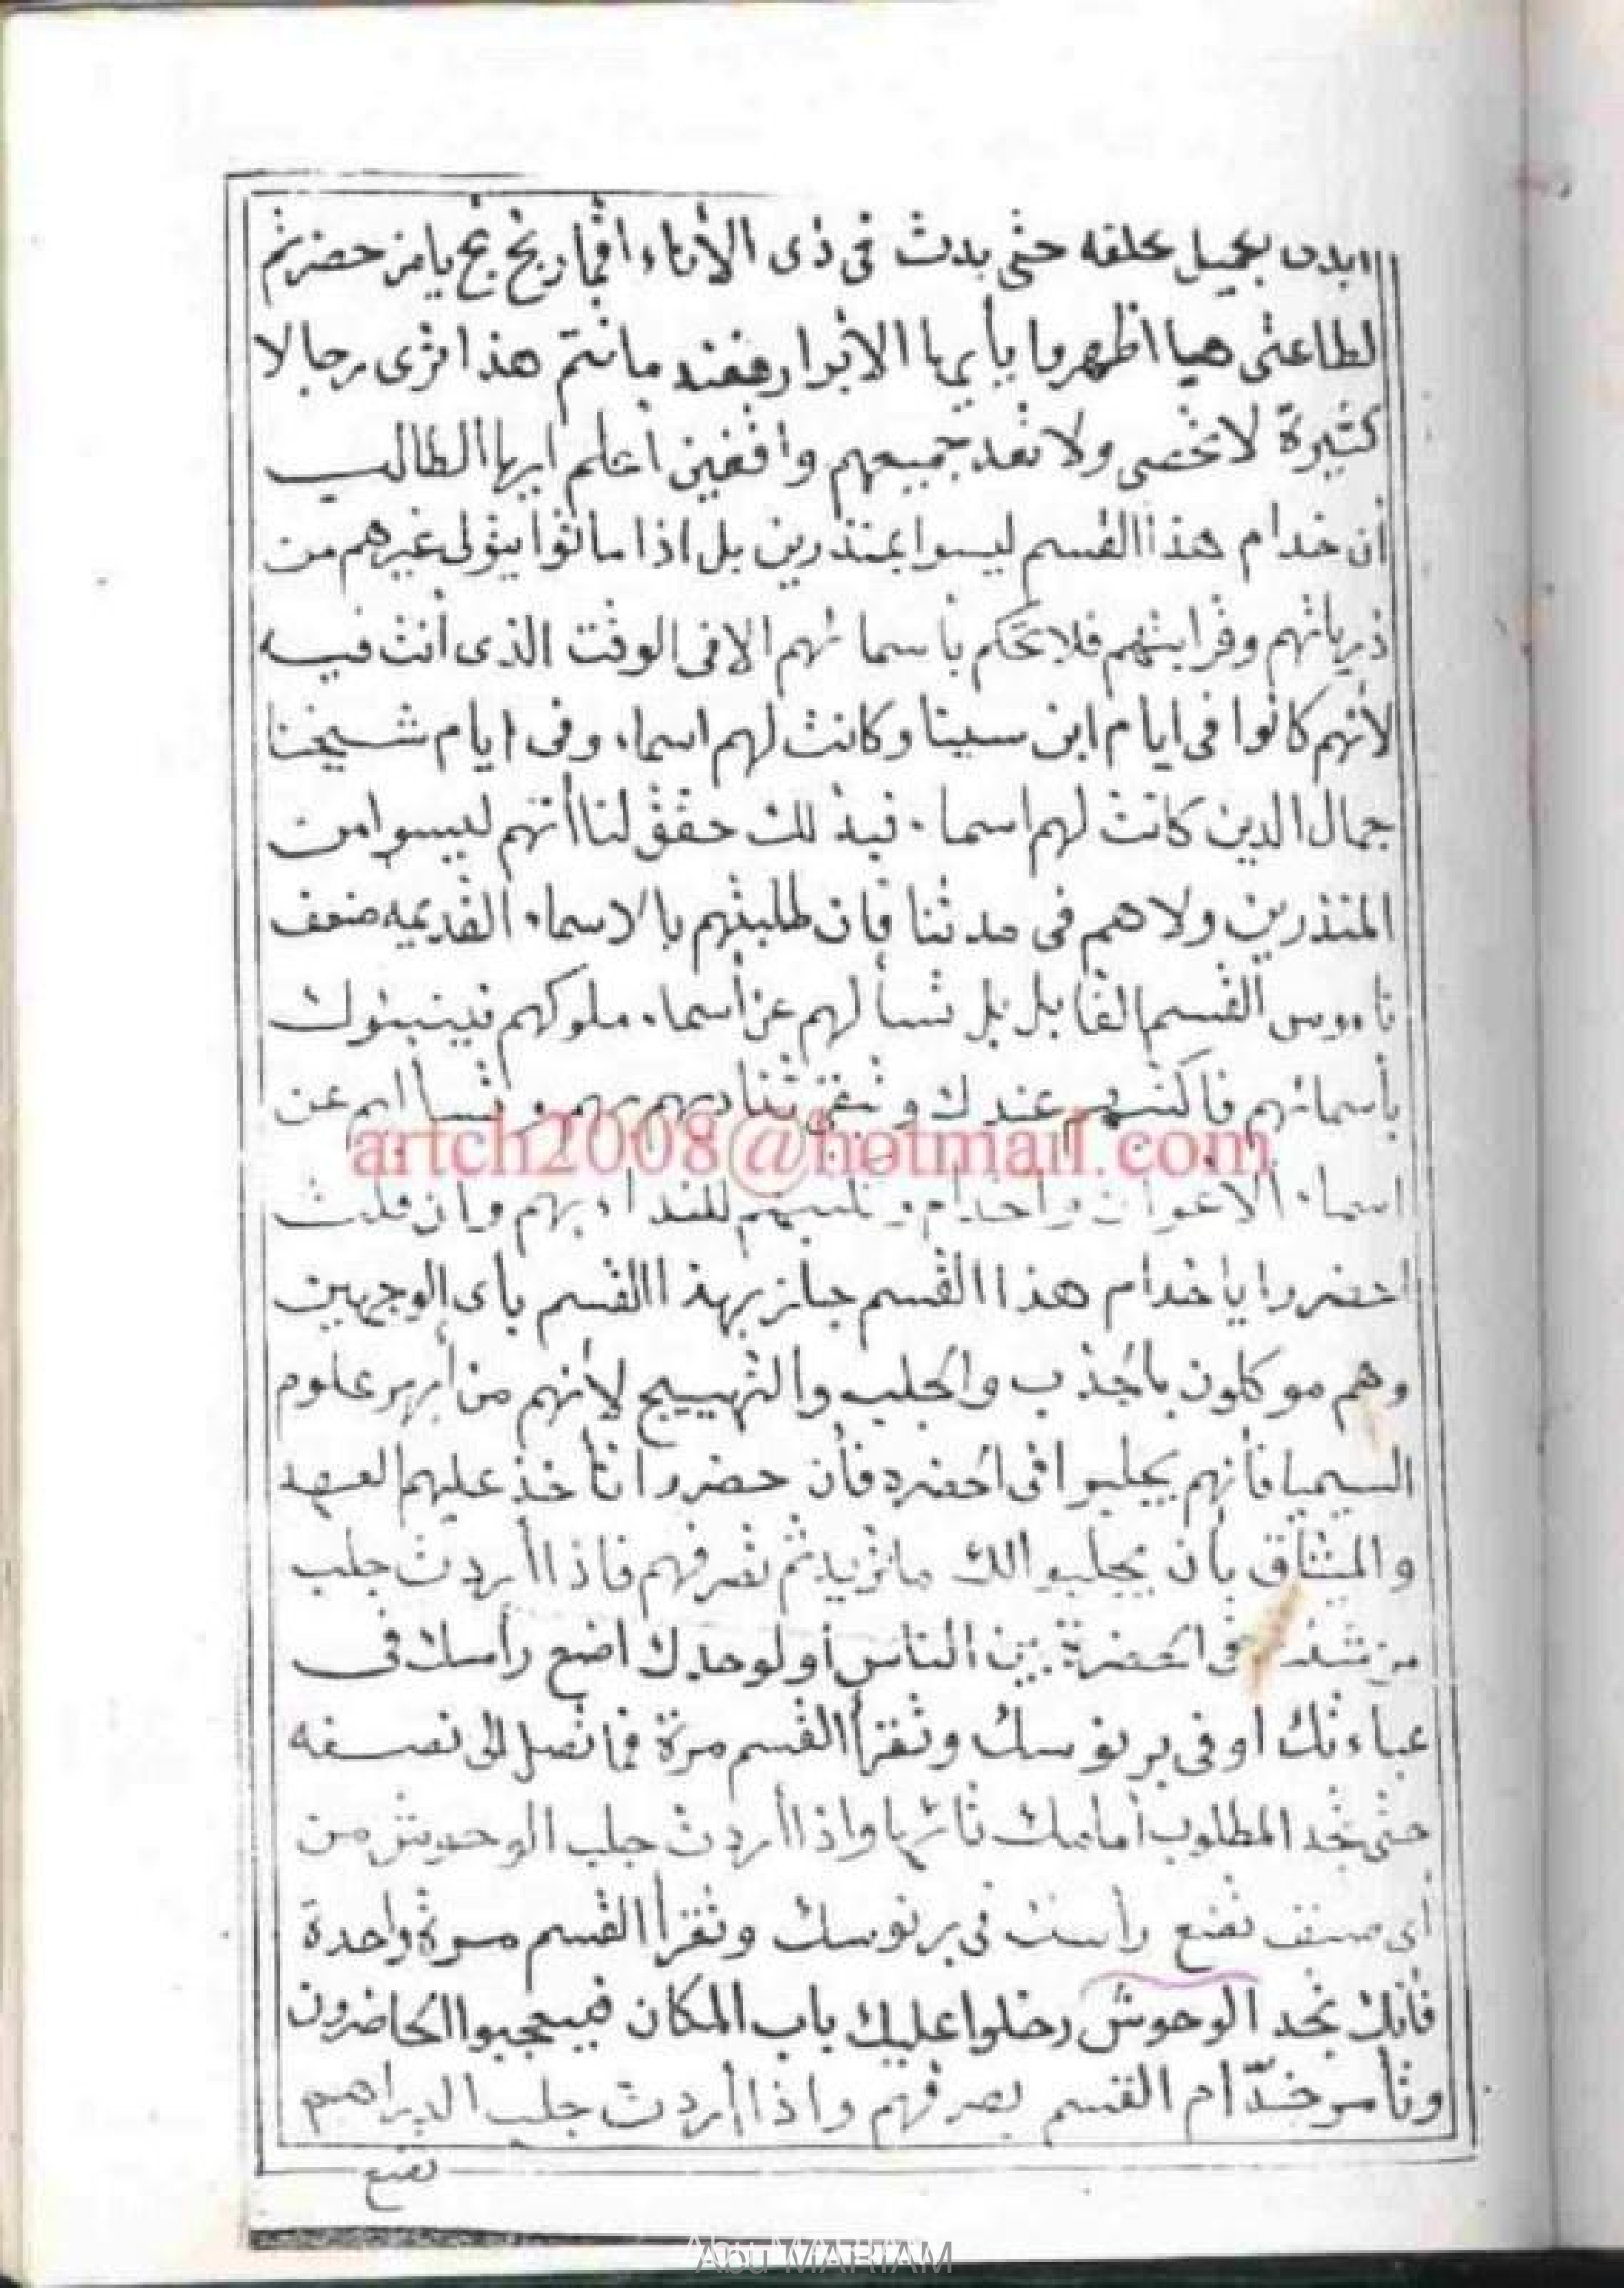 بجميل خلقه حتى بدت فى ذى الأناء اقمار يامن حضرتم
لطاعتى هيا اظهروا يا أيها الابرار فعند ما تتم هذا ترى رجالا
كثيرة لا تحصى ولا تعد جميعهم واقفين أعلم ايها الطالب
أن خدام هذا القسم ليسوا بمنذرين بل اذا ماتوا يتولى غيرهم من
ذرياتهم وقرابتهم فلا تحكم بأسمائهم الا فى الوقت الذى أنت فيه
لأنهم كانوا فى ايام ابن سينا وكانت لهم اسماء وفى ايام شيخنا
جمال الدين كانت لهم اسماء فبذلك حقق لنا أنهم ليسوا من
المنذرين ولا هم فى مدتنا فان طلبتهم بالاسماء القديمه ضعف
القسم بل تسألهم عن أسماء ملوكهم فينبئوك
بأسمائهم فاكتبهم عندك تناديهم بهم وتسألهم عن
artch2008@hotmail.com
اسماء الاعوان للنداء بهم وان قلت
احضروا يا خدام هذا القسم جائز بهذا القسم بأى الوجهين
وهم موكلون بالجذب والجلب والتهييج لأنهم من أبهر علوم
السيميا فأنهم يجلبوا فى الحضره فأن حضروا تأخذ عليهم العهد
والميثاق بأن يجلبوا لك ما تريد ثم تصرفهم فاذا أردت جلب
من فى الحضرة بين الناس أو لوحدك اضع رأسك فى
عباءتك او فى برنوسك وتقرأ القسم مرة فما تصل الى نصفه
حتى تجد المطلوب أمامك واذا أردت جلب الوحوش من
أى صنف تضع رأسك فى برنوسك وتقرأ القسم مرة واحدة
فأنك تجد الوحوش دخلوا عليك باب المكان فيعجبوا الحاضرون
وتأمر خدّام القسم بصرفهم واذا أردت جلب الدراهم
تضع
Abu MARIAM